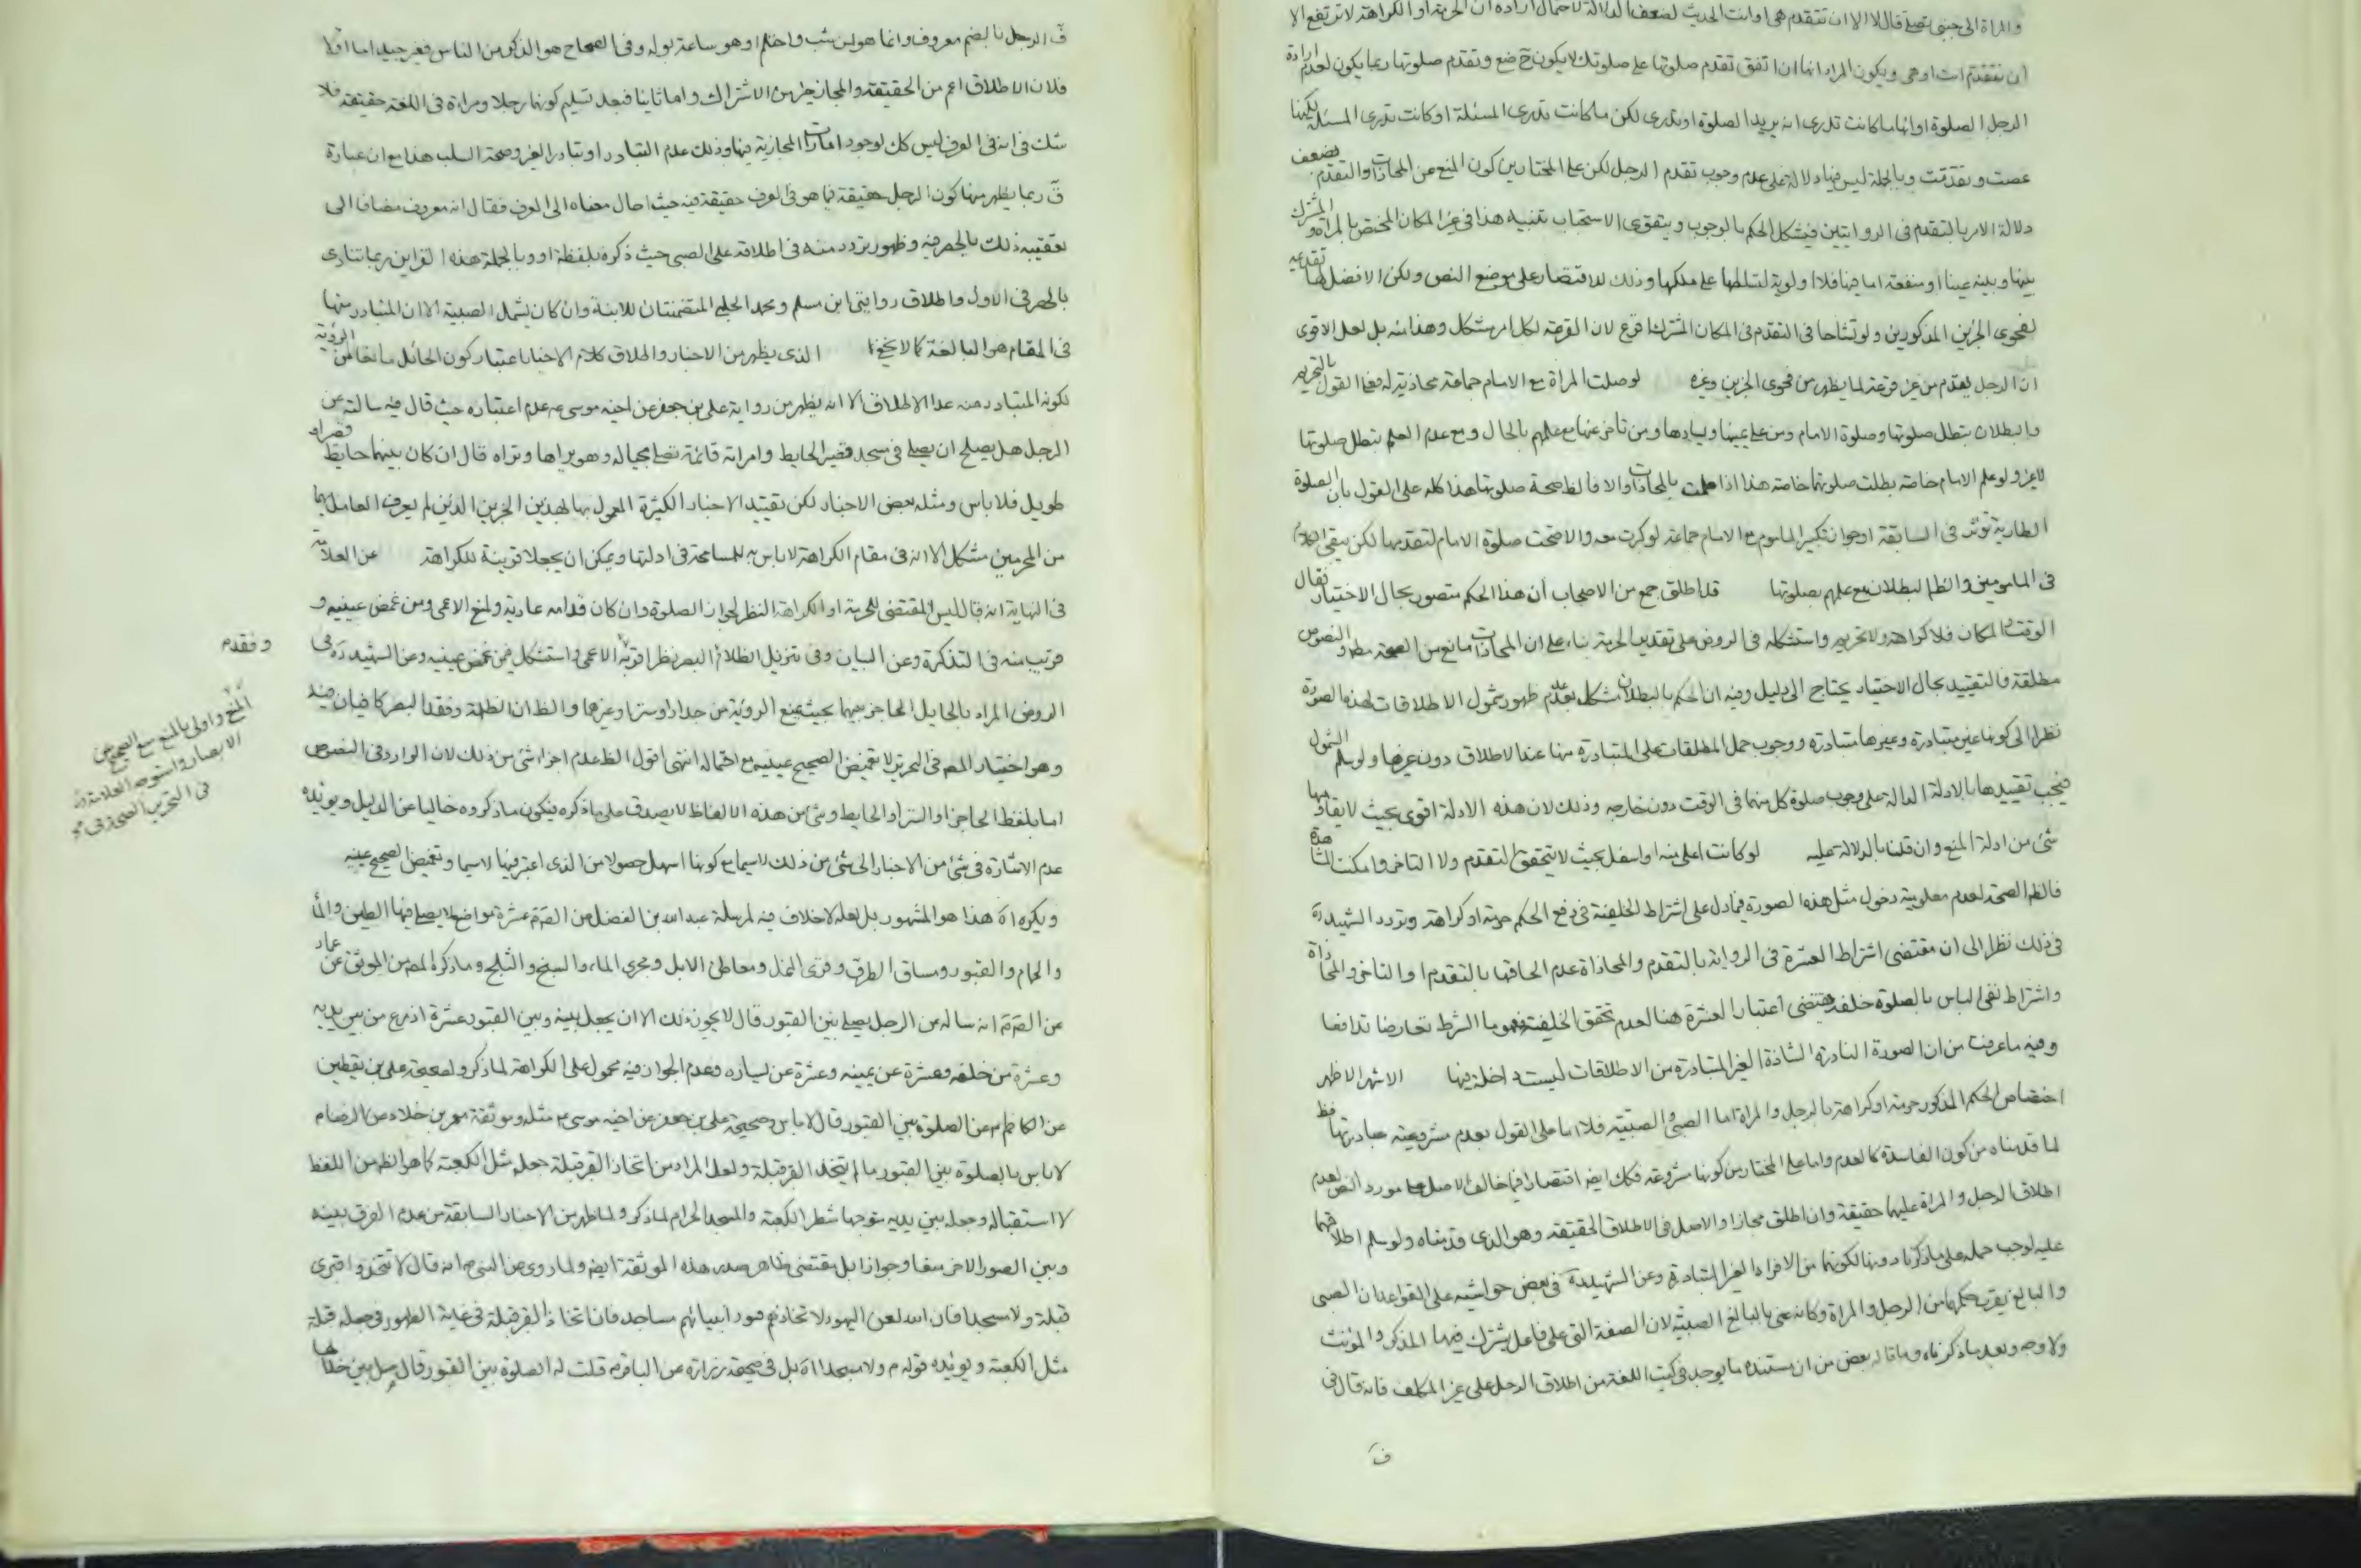 والمراة الى جنبى تصلى قال لا الا ان تتقدم هى او انت الحديث لضعف الدلالة لاحتمال ارادة ان الحرمة او الكراهة لا ترتفع الا
ان تتقدم انت او هى ويكون المراد انها ان اتفق تقدم صلوتها على صلوتك لا يكون ح ضع وتقدم صلوتها ربما يكون لعدم ارادة
الرجل الصلوة او انها ما كانت تدرى انه يريد الصلوة او تدرى لكن ما كانت تدرى المسئلة او كانت تدرى المسئلة لكنها
عصت وتقدمت وبالجملة ليس فيها دلالة على عدم وجوب تقدم الرجل لكن على المختار من كون المنع عن المحاذات والتقدم يضعف
دلالة الامر بالتقدم فى الروايتين فيشكل الحكم بالوجوب ويتقوى الاستحباب تنبيه هذا فى غير المكان المختص بالمراة والمشترك
بينها وبينه عينا او منفعة اما فيها فلا اولوية لتسلطها على ملكها وذلك للاقتصار على موضع النص ولكن الافضل لها تقديمه
لفحوى الخبرين المذكورين ولو تشاحا فى التقدم فى المكان المشترك اقرع لان القرعة لكل امر مشكل وهذا منه بل لعل الاقوى
ان الرجل يقدم من غير قرعة لما يظهر من فحوى الخبرين وغيره لو صلت المراة مع الامام جماعة محاذية له فعلى القول بالتحريم
والبطلان بتطل صلوتها وصلوة الامام ومن على يمينها ويسارها ومن تاخر عنها مع علمهم بالحال ومع عدم العلم بتطل صلوتها
لا غير ولو علم الامام خاصة بطلت صلوتهما خاصة هذا اذا علمت بالمحاذات والا فالظ صحة صلوتها هذا كله على القول بان الصلوة
الطارية تؤثر فى السابقة او جواز تكبير الماموم مع الامام جماعة لو كبرت معه والا صحت صلوة الامام لتقدمها لكن يبقى الكلام
فى المامومين والظ البطلان مع علمهم بصلوتها قد اطلق جمع من الاصحاب ان هذا الحكم متصور بحال الاختيار فقال
الوقت والمكان فلا كراهة ولا تحريم واستشكله فى الروض على تقدير الحرمة بناء على ان المحاذات مانع من الصحة مط والنصوص
مطلقة فالتقييد بحال الاختيار يحتاج الى دليل وفيه ان الحكم بالبطلان مشكل لعدم ظهور شمول الاطلاقات لهذه الصورة
نظرا الى كونها غير متبادرة وغيرها متبادرة ووجوب حمل المطلقات على المتبادرة منها عند الاطلاق دون غيرها ولو سلم الشمول
فيجب تقييدها بالادلة الدالة على وجوب صلوة كل منهما فى الوقت دون خارجه وذلك لان هذه الادلة اقوى بحيث لا يقاومها
شئ من ادلة المنع وان قلنا بالدلالة عليه لو كانت اعلى منه او اسفل بحيث لا يتحقق التقدم ولا التاخر وامكنت المشاهدة
فالظ الصحة لعدم معلومية دخول مثل هذه الصورة فيما دل على اشتراط الخلفية فى رفع الحكم حرمة او كراهة وتردد الشهيد ره
فى ذلك نظرا الى ان مقتضى اشتراط العشرة فى الرواية بالتقدم والمحاذاة عدم الحاقها بالتقدم او التاخر والمحاذاة
واشتراط نفى الباس بالصلوة خلفه يقتضى اعتبار العشرة هنا لعدم تحقق الخلفية فمفهوما الشرط تعارضا تدافعا
وفيه ما عرفت من ان الصورة النادرة الشاذة الغير المتبادرة من الاطلاقات ليست داخلة فيها الاشهر الاظهر
اختصاص الحكم المذكور حرمة او كراهة بالرجل والمراة اما الصبى والصبية فلا اما على القول بعدم مشروعية عبادتهما فظ
لما قدمناه من كون الفاسدة كالعدم واما على المختار من كونها مشروعة فكك ايضا اقتصارا فيما خالف الاصل على مورد النص لعدم
اطلاق الرجل والمراة عليهما حقيقة وان اطلق مجازا والاصل فى الاطلاق الحقيقة وهو الذى قدمناه ولو سلم اطلاقهما
عليه لوجب حمله على ما ذكرنا دونها لكونهما من الافراد الغير المتبادرة وعن الشهيد ره فى بعض حواشيه على القواعد ان الصبى
والبالغ يقرب حكمهما من الرجل والمراة وكانه عنى بالبالغ الصبية لان الصفة التى على فاعل يشترك فيها المذكر والمؤنث
ولا وجه وبعد ما ذكرناه وما قاله بعض من ان مستنده ما يوجد فى كتب اللغة من اطلاق الرجل على غير المكلف فانه قال فى
ق
ق الرجل بالضم معروف وانما هو لمن شب واحتلم او هو ساعة يولد وفى الصحاح هو الذكر من الناس فغير جيد اما اولا
فلان الاطلاق اعم من الحقيقة والمجاز خير من الاشتراك واما ثانيا فبعد تسليم كونهما رجلا ومراة فى اللغة حقيقة فلا
شك فى انه فى العرف ليس كك لوجود امارات المجازية فيها وذلك عدم التبادر او تبادر الغير وصحة السلب هذا مع ان عبارة
ق ربما يظهر منها كون الرجل حقيقة فيما هو فى العرف حقيقة فيه حيث احال معناه الى العرف فقال انه معروف مضافا الى
تعقيبه ذلك بالحصر فيه وظهور تردد منه فى اطلاقه على الصبى حيث ذكره بلفظة او وبالجملة هذه القراين ربما تنادى
بالحصر فى الاول واطلاق روايتى ابن مسلم ومحمد الحلبى المتضمنتان للابنة وان كان يشمل الصبية الا ان المتبادر منها
فى المقام هو البالغة كما لا يخفى الذى يظهر من الاخبار واطلاق كلام الاخبار اعتبار كون الحائل مانعا من الرؤية
لكونه المتبادر منه عند الاطلاق الا انه يظهر من رواية على بن جعفر عن اخيه موسى ع عدم اعتباره حيث قال فيه سالته عن
الرجل هل يصلح ان يصلى فى مسجد قصير الحايط وامراته قائمة تصلى بحياله وهو يراها وتراه قال ان كان بينهما حايط قصير او
طويل فلا باس ومثله بعض الاخبار لكن تقييد الاخبار الكثيرة المعمول بها لهذين الخبرين الذين لم يعرف العامل بهما
من المحرمين مشكل الا انه فى مقام الكراهة لا باس به للمسامحة فى ادلتها ويمكن ان يجعلا قرينة للكراهة عن العلامة
فى النهاية انه قال ليس المقتضى للحرمة او الكراهة النظر لجواز الصلوة وان كان قدامه عارية ولمنع الاعمى ومن غمض عينيه و
قريب منه فى التذكرة وعن البيان وفى تنزيل الظلام او البصر نظر اقربه الاعمى واستشكل فى من غمض عينيه وعن الشهيد ره فى
الروض المراد بالحايل الحاجز بينهما بحيث يمنع الرؤية من جدار وستر وغيرها والظ ان الظلمة وفقد البصر كافيان فيه
وهو اختيار المص فى التحرير لا تغميض الصحيح عينيه مع احتماله انتهى اقول الظ عدم اجزاء شئ من ذلك لان الوارد فى النصوص
اما بلفظ الحاجز او الستر او الحايط وشئ من هذه الالفاظ لا يصدق على ما ذكره فيكون ما ذكروه خاليا عن الدليل ويؤيده
عدم الاشارة فى شئ من الاخبار الى شئ من ذلك لا سيما مع كونها اسهل حصولا من الذى اعتبر فيها لا سيما وتغميض الصحيح عينيه
ويكره اه هذا هو المشهور بل لعله لا خلاف فيه لمرسلة عبد الله بن الفضل عن الص ع عشرة مواضع لا يصلى فيها الطين والماء
والحمام والقبور ومسان الطرق وقرى النمل ومعاطن الابل ومجرى الماء والسبخ والثلج وما ذكره المص من الموثق عن عمار
عن الص ع انه ساله عن الرجل يصلى بين القبور قال لا يجوز ذلك الا ان يجعل بينه وبين القبور عشرة اذرع من بين يديه
وعشرة من خلفه وعشرة عن يمينه وعشرة عن يساره وعدم الجواز فيه محمول على الكراهة لما ذكر ولصحيحة على بن يقطين
عن الكاظم ع عن الصلوة بين القبور قال لا باس وصحيحة على بن جعفر عن اخيه موسى ع مثله وموثقة معمر بن خلاد عن الرضا ع
لا باس بالصلوة بين القبور ما لم يتخذ القبر قبلة ولعل المراد من اتخاذ القبر قبلة جعله مثل الكعبة كما هو الظ من اللفظ
لا استقباله وجعله بين يديه متوجها شطر الكعبة والمسجد الحرام لما ذكر ولما ظهر من الاخبار السابقة من عدم الفرق بينه
وبين الصور الاخر منعا وجوازا بل مقتضى ظاهر صدر هذه الموثقة ايضا ولما روى عن النبى ص انه قال لا تتخذوا قبرى
قبلة ولا مسجدا فان الله لعن اليهود لاتخاذهم قبور انبيائهم مساجد فان اتخاذ القبر قبلة فى غاية الظهور فى جعله قبلة
مثل الكعبة ويؤيده قوله ص ولا مسجدا اه بل فى صحيحة زرارة عن الباقر ع قلت له الصلوة بين القبور قال صل بين خلالها
وفقدم
المنع واولى بالمنع منع الصحيح من
الابصار واستوجه العلامة ره
فى التحرير الصحة فى